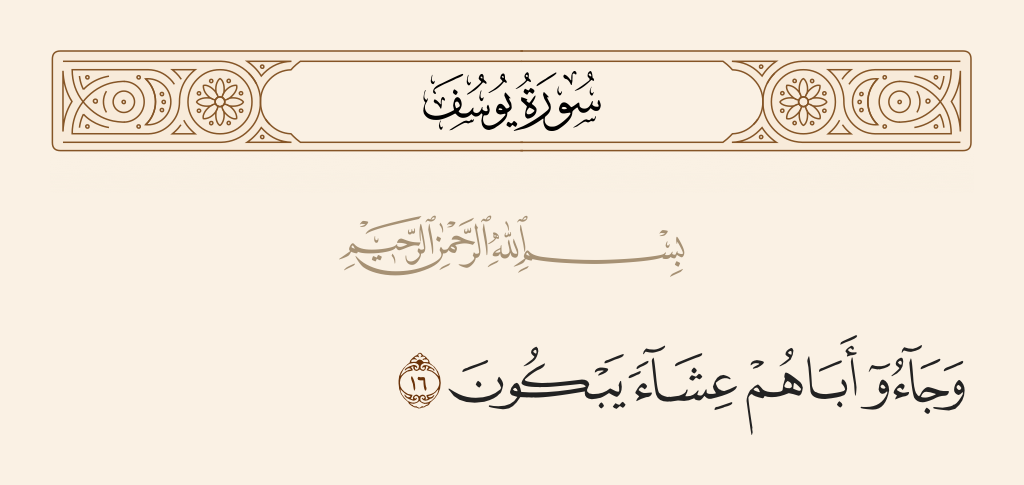 سُورَةُ يُوسُفَ
بِسْمِ ٱللَّهِ ٱلرَّحْمَٰنِ ٱلرَّحِيمِ
وَجَآءُوٓ أَبَاهُمْ عِشَآءً يَبْكُونَ ١٦